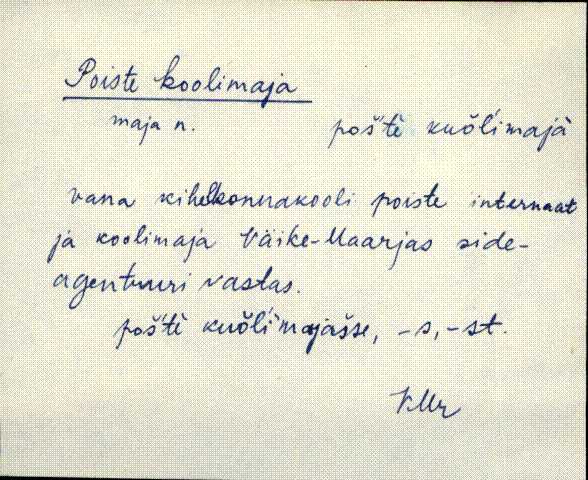 Poiste koolimaja
maja n. poš̀t̀è kuŏĺimajà
vana kihelkonnakooli poiste internaat
ja koolimaja Väike-Maarjas side-
agentuuri vastas.
poš̀t̀è kuŏĺimajašse, -s, -st.
VMr